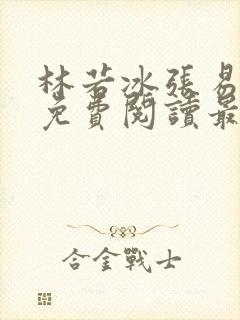 林若冰張易
免費閱讀最
合金戰士